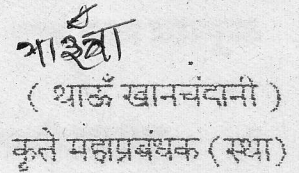 ( थाऊँ खानचंदानी )
कृते महाप्रबंधक (स्था)